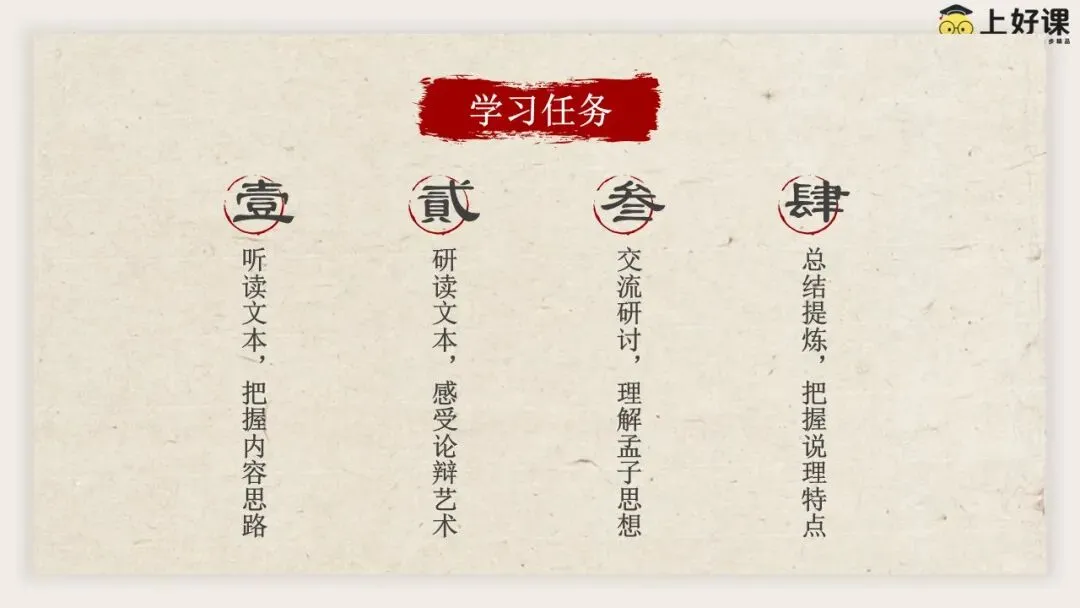 上好课
学习任务
壹
听读文本，把握内容思路
貳
研读文本，感受论辩艺术
叁
交流研讨，理解孟子思想
肆
总结提炼，把握说理特点